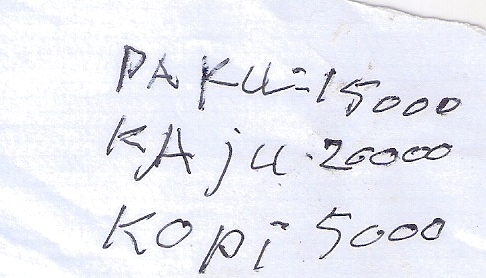 PAKU = 15000
KAju . 20000
KOPi 5000